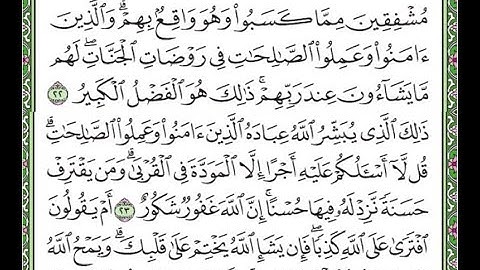 مُشْفِقِينَ مِمَّا كَسَبُواْ وَهُوَ وَاقِعٌۢ بِهِمْۗ وَٱلَّذِينَ
ءَامَنُواْ وَعَمِلُواْ ٱلصَّٰلِحَٰتِ فِي رَوْضَاتِ ٱلْجَنَّاتِۖ لَهُم
مَّا يَشَآءُونَ عِندَ رَبِّهِمْۚ ذَٰلِكَ هُوَ ٱلْفَضْلُ ٱلْكَبِيرُ ٢٢
ذَٰلِكَ ٱلَّذِي يُبَشِّرُ ٱللَّهُ عِبَادَهُ ٱلَّذِينَ ءَامَنُواْ وَعَمِلُواْ ٱلصَّٰلِحَٰتِۗ
قُل لَّآ أَسْـَٔلُكُمْ عَلَيْهِ أَجْرًا إِلَّا ٱلْمَوَدَّةَ فِي ٱلْقُرْبَىٰۗ وَمَن يَقْتَرِفْ
حَسَنَةً نَّزِدْ لَهُۥ فِيهَا حُسْنًاۚ إِنَّ ٱللَّهَ غَفُورٌ شَكُورٌ ٢٣ أَمْ يَقُولُونَ
ٱفْتَرَىٰ عَلَى ٱللَّهِ كَذِبًاۖ فَإِن يَشَإِ ٱللَّهُ يَخْتِمْ عَلَىٰ قَلْبِكَۗ وَيَمْحُ ٱللَّهُ